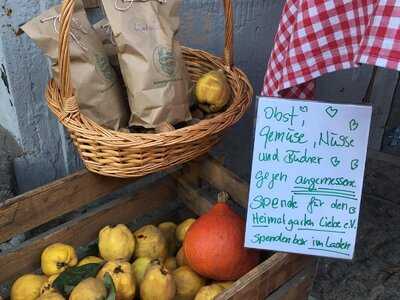 Obst,
Gemüse, Nüsse
und Bücher
gegen angemessene
Spende für den
Heimatgarten Liebe e.V.
Spendenbox im Laden